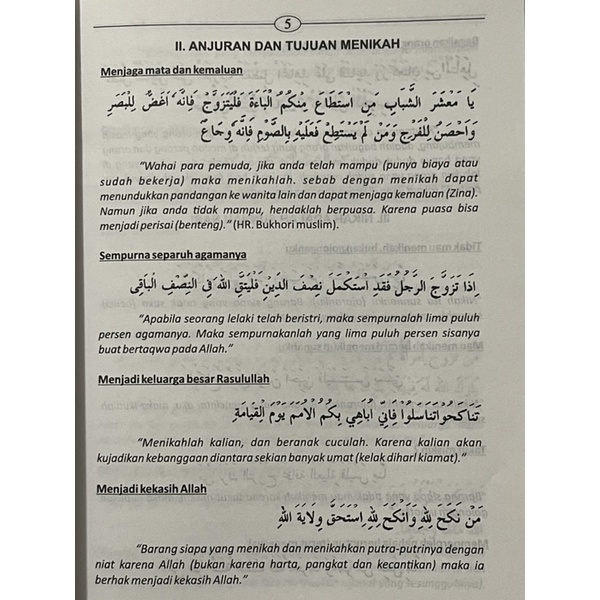 5
II. ANJURAN DAN TUJUAN MENIKAH
Menjaga mata dan kemaluan
يَا مَعْشَرَ الشَّبَابِ مَنِ اسْتَطَاعَ مِنْكُمُ الْبَاءَةَ فَلْيَتَزَوَّجْ فَإِنَّهُ أَغَضُّ لِلْبَصَرِ
وَأَحْصَنُ لِلْفَرْجِ وَمَنْ لَمْ يَسْتَطِعْ فَعَلَيْهِ بِالصَّوْمِ فَإِنَّهُ وِجَاءٌ
"Wahai para pemuda, jika anda telah mampu (punya biaya atau
sudah bekerja) maka menikahlah. sebab dengan menikah dapat
menundukkan pandangan ke wanita lain dan dapat menjaga kemaluan (Zina).
Namun jika anda tidak mampu, hendaklah berpuasa. Karena puasa bisa
menjadi perisai (benteng)." (HR. Bukhori muslim).
Sempurna separuh agamanya
اِذَا تَزَوَّجَ الرَّجُلُ فَقَدِ اسْتَكْمَلَ نِصْفَ الدِّيْنِ فَلْيَتَّقِ اللّٰهَ فِى النِّصْفِ الْبَاقِى
"Apabila seorang lelaki telah beristri, maka sempurnalah lima puluh
persen agamanya. Maka sempurnakanlah yang lima puluh persen sisanya
buat bertaqwa pada Allah."
Menjadi keluarga besar Rasulullah
تَنَاكَحُوْا تَنَاسَلُوْا فَاِنِّى اُبَاهِي بِكُمُ الْاُمَمَ يَوْمَ الْقِيَامَةِ
"Menikahlah kalian, dan beranak cuculah. Karena kalian akan
kujadikan kebanggaan diantara sekian banyak umat (kelak diharI kiamat)."
Menjadi kekasih Allah
مَنْ نَكَحَ لِلّٰهِ وَأَنْكَحَ لِلّٰهِ اِسْتَحَقَّ وِلَايَةَ اللّٰهِ
"Barang siapa yang menikah dan menikahkan putra-putrinya dengan
niat karena Allah (bukan karena harta, pangkat dan kecantikan) maka ia
berhak menjadi kekasih Allah."